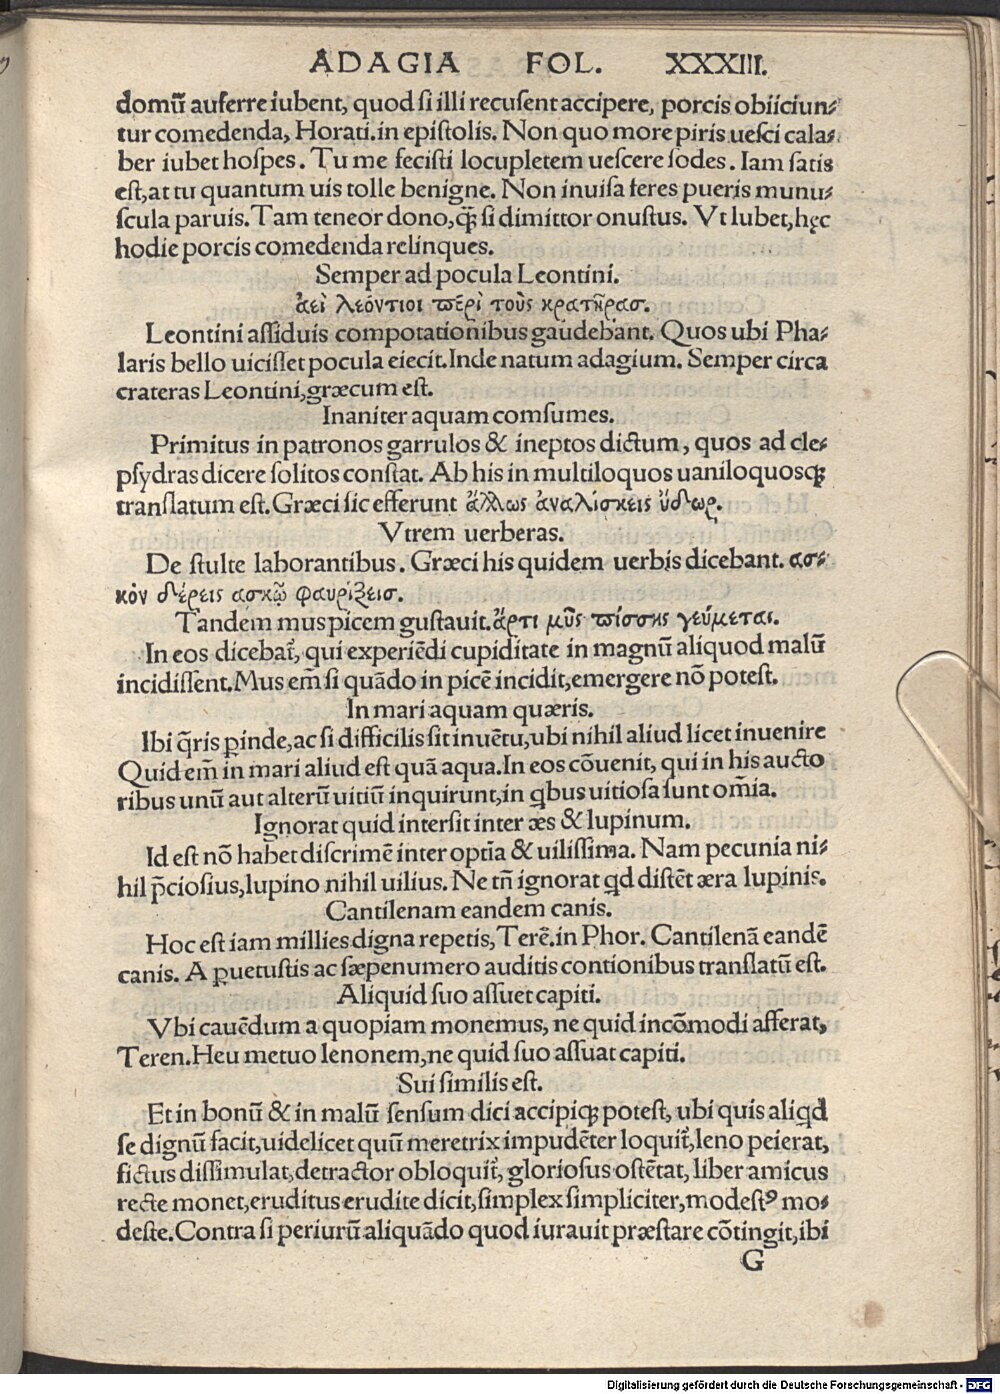 ADAGIA FOL. XXXIII.
domū auferre iubent, quod si illi recusent accipere, porcis obiiciun⸗
tur comedenda, Horati. in epistolis. Non quo more piris uesci cala⸗
ber iubet hospes. Tu me fecisti locupletem uescere sodes. Iam satis
est, at tu quantum uis tolle benigne. Non inuisa feres pueris munu⸗
scula paruis. Tam teneor dono, q̃ꝫ si dimittor onustus. Vt lubet, hęc
hodie porcis comedenda relinques.
Semper ad pocula Leontini.
ἀεὶ λεόντιοι περὶ τοὺς κρατῆρασ.
Leontini assiduis compotationibus gaudebant. Quos ubi Pha⸗
laris bello uicisset pocula eiecit. Inde natum adagium. Semper circa
crateras Leontini, græcum est.
Inaniter aquam comsumes.
Primitus in patronos garrulos & ineptos dictum, quos ad cle⸗
psydras dicere solitos constat. Ab his in multiloquos uaniloquosqꝫ
translatum est. Græci sic efferunt ἄλλως ἀναλίσκεις ὕδωρ.
Vtrem uerberas.
De stulte laborantibus. Græci his quidem uerbis dicebant. ασ⸗
κὸν δέρεις ασκῷ φαυρίζεισ.
Tandem mus picem gustauit. ἄρτι μῦς πίσσης γεύμεται.
In eos dicebat̄, qui experiēdi cupiditate in magnū aliquod malū
incidissent. Mus em̄ si quādo in picē incidit, emergere nō potest.
In mari aquam quæris.
Ibi q̄ris ꝑinde, ac si difficilis sit inuētu, ubi nihil aliud licet inuenire
Quid em̄ in mari aliud est quā aqua. In eos cōuenit, qui in his aucto
ribus unū aut alterū uitiū inquirunt, in qbus uitiosa sunt om̄ia.
Ignorat quid intersit inter æs & lupinum.
Id est nō habet discrimē inter optīa & uilissima. Nam pecunia ni⸗
hil p̄ciosius, lupino nihil uilius. Ne tn̄ ignorat qd distēt æra lupinis.
Cantilenam eandem canis.
Hoc est iam millies digna repetis, Terē. in Phor. Cantilenā eandē
canis. A ꝑuetustis ac sæpenumero auditis contionibus translatū est.
Aliquid suo assuet capiti.
Vbi cauēdum a quopiam monemus, ne quid incōmodi afferat,
Teren. Heu metuo lenonem, ne quid suo assuat capiti.
Sui similis est.
Et in bonū & in malū sensum dici accipiqꝫ potest, ubi quis aliqd
se dignū facit, uidelicet quū meretrix impudēter loquit̄, leno peierat,
fictus dissimulat, detractor obloquit̄, gloriosus ostētat, liber amicus
recte monet, eruditus erudite dicit, simplex simpliciter, modestꝰ mo⸗
deste. Contra si periurū aliquādo quod iurauit præstare cōtingit, ibi
G
Digitalisierung gefördert durch die Deutsche Forschungsgemeinschaft - DFG